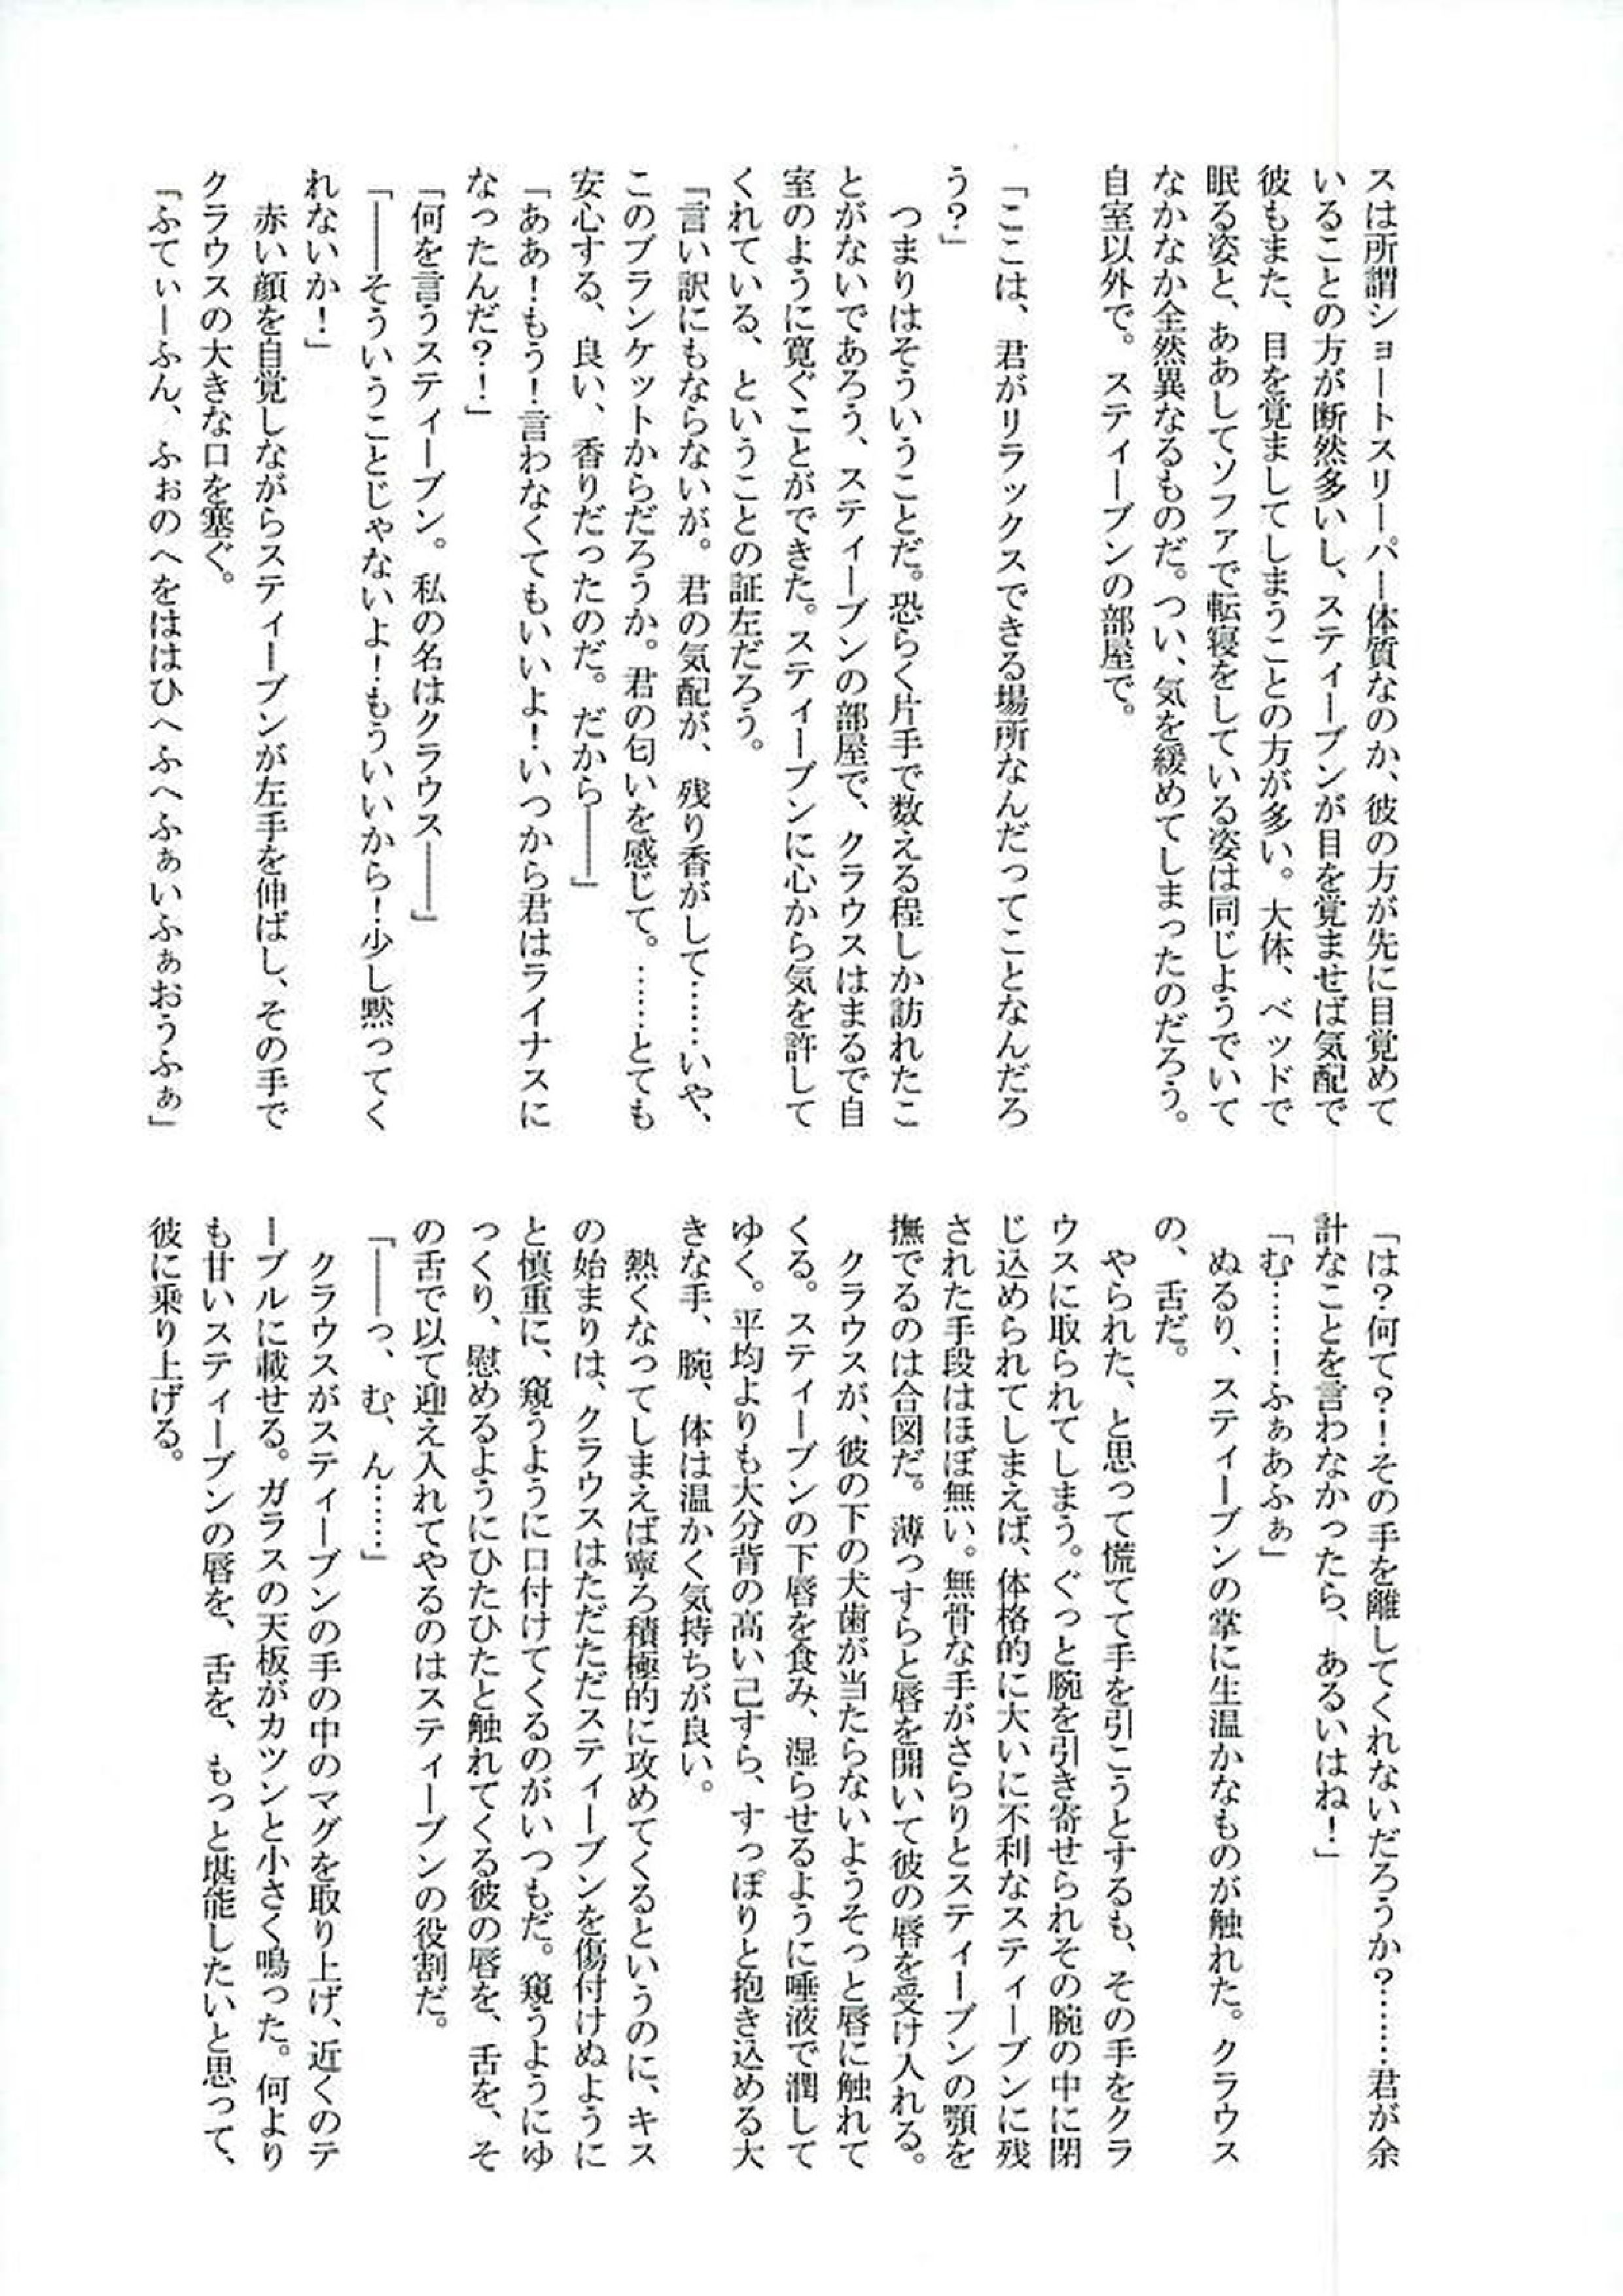 スは所謂ショートスリーパー体質なのか、彼の方が先に目覚めて
いることの方が断然多いし、スティーブンが目を覚ませば気配で
彼もまた、目を覚ましてしまうことの方が多い。大体、ベッドで
眠る姿と、ああしてソファで転寝をしている姿は同じようでいて
なかなか全然異なるものだ。つい、気を緩めてしまったのだろう。
自室以外で。スティーブンの部屋で。
「ここは、君がリラックスできる場所なんだってことなんだろ
う？」
つまりはそういうことだ。恐らく片手で数える程しか訪れたこ
とがないであろう、スティーブンの部屋で、クラウスはまるで自
室のように寛ぐことができた。スティーブンに心から気を許して
くれている、ということの証左だろう。
「言い訳にもならないが。君の気配が、残り香がして……いや、
このブランケットからだろうか。君の匂いを感じて。……とても
安心する、良い、香りだったのだ。だから――」
「ああ！もう！言わなくてもいいよ！いつから君はライナスに
なったんだ？！」
「何を言うスティーブン。私の名はクラウス――」
「――そういうことじゃないよ！もういいから！少し黙ってく
れないか！」
赤い顔を自覚しながらスティーブンが左手を伸ばし、その手で
クラウスの大きな口を塞ぐ。
「ふてぃーふん、ふぉのへをははひへふへふぁいふぁおうふぁ」
「は？何て？！その手を離してくれないだろうか？……君が余
計なことを言わなかったら、あるいはね！」
「む……！ふぁあふぁ」
ぬるり、スティーブンの掌に生温かなものが触れた。クラウス
の、舌だ。
やられた、と思って慌てて手を引こうとするも、その手をクラ
ウスに取られてしまう。ぐっと腕を引き寄せられその腕の中に閉
じ込められてしまえば、体格的に大いに不利なスティーブンに残
された手段はほぼ無い。無骨な手がさらりとスティーブンの顎を
撫でるのは合図だ。薄っすらと唇を開いて彼の唇を受け入れる。
クラウスが、彼の下の犬歯が当たらないようそっと唇に触れて
くる。スティーブンの下唇を食み、湿らせるように唾液で潤して
ゆく。平均よりも大分背の高い己すら、すっぽりと抱き込める大
きな手、腕、体は温かく気持ちが良い。
熱くなってしまえば寧ろ積極的に攻めてくるというのに、キス
の始まりは、クラウスはただただスティーブンを傷付けぬように
と慎重に、窺うように口付けてくるのがいつもだ。窺うようにゆ
っくり、慰めるようにひたひたと触れてくる彼の唇を、舌を、そ
の舌で以て迎え入れてやるのはスティーブンの役割だ。
「――っ、む、ん……」
クラウスがスティーブンの手の中のマグを取り上げ、近くのテ
ーブルに載せる。ガラスの天板がカツンと小さく鳴った。何より
も甘いスティーブンの唇を、舌を、もっと堪能したいと思って、
彼に乗り上げる。